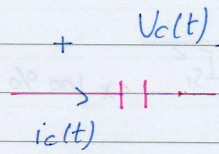 Vc(t)
+
ic(t)